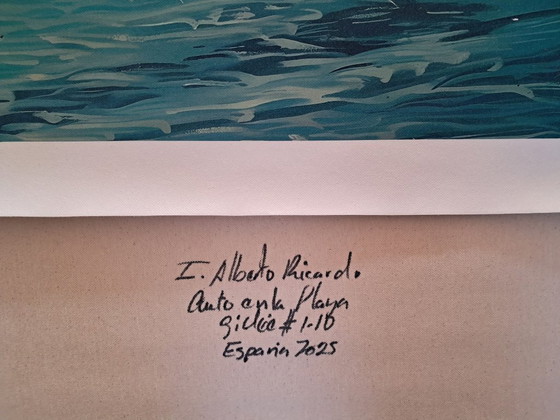 I. Alberto Ricardo
Auto en la Playa
giclée # 1-10
España 2025